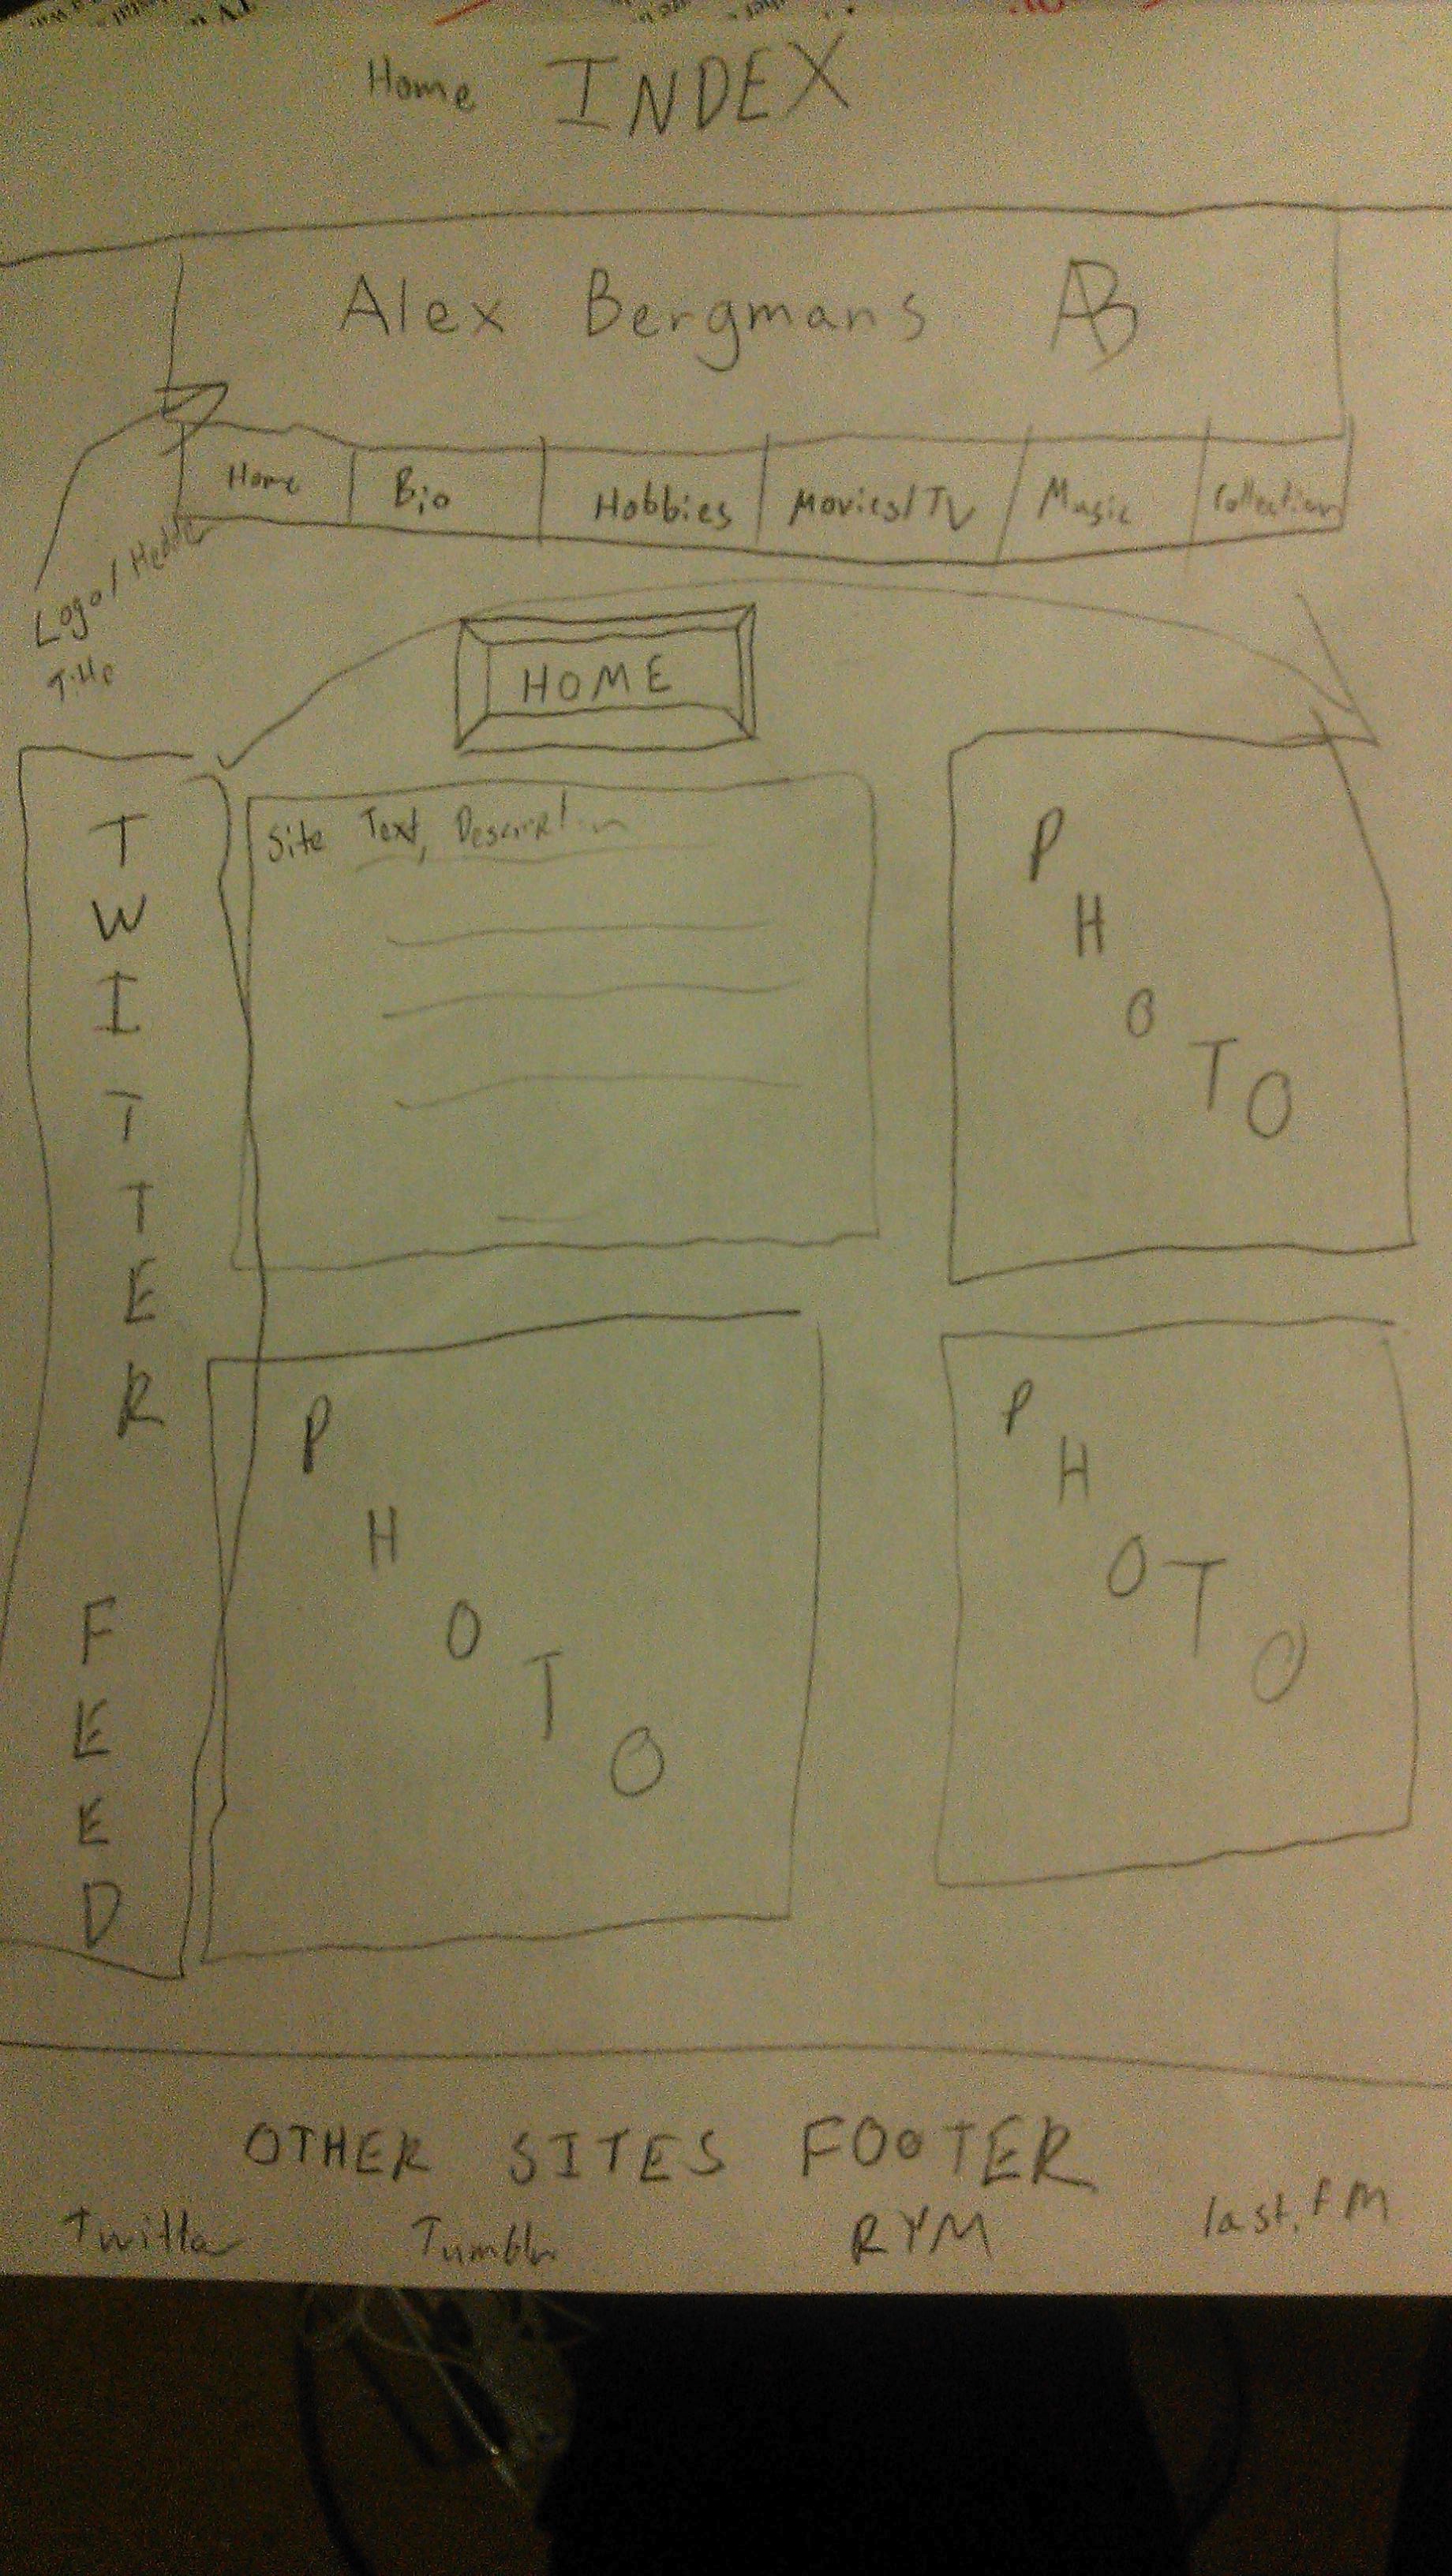 Home INDEX
Alex Bergmans AB
Home Bio Hobbies Movies/TV Music Collection
Logo/Header
Title
HOME
TWITTER FEED
Site Text, Description
PHOTO
PHOTO
PHOTO
OTHER SITES FOOTER
Twitter Tumblr RYM last.FM